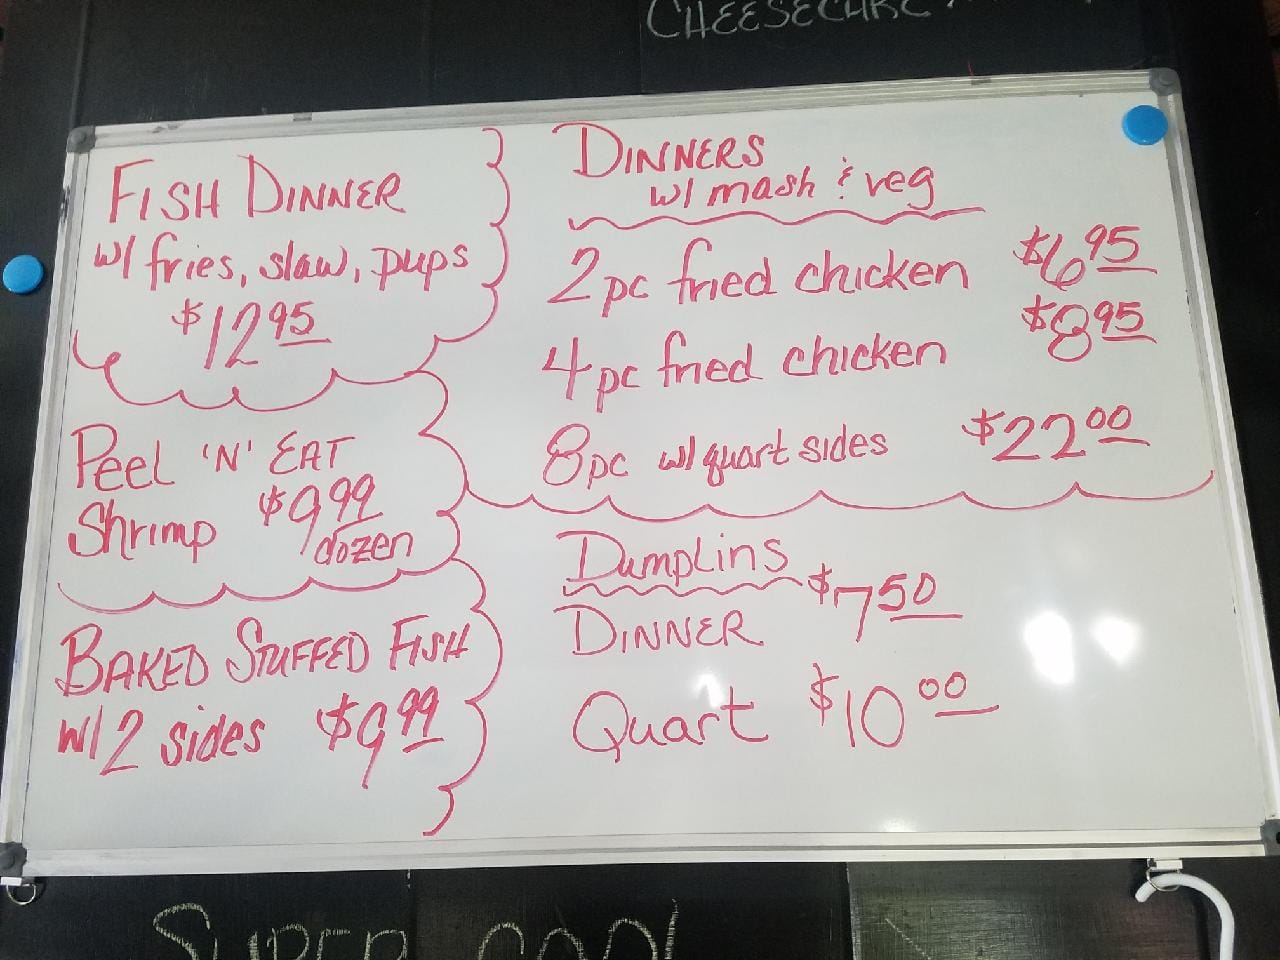 CHEESECAKE
FISH DINNER
w/ fries, slaw, pups
$12.95
Peel 'N' EAT
Shrimp $9.99
dozen
BAKED STUFFED FISH
w/ 2 sides $9.99
DINNERS
w/ mash & veg
2pc fried chicken $6.95
4pc fried chicken $8.95
8pc w/ quart sides $22.00
DumpLins
DINNER $7.50
Quart $10.00
SUPER COOL